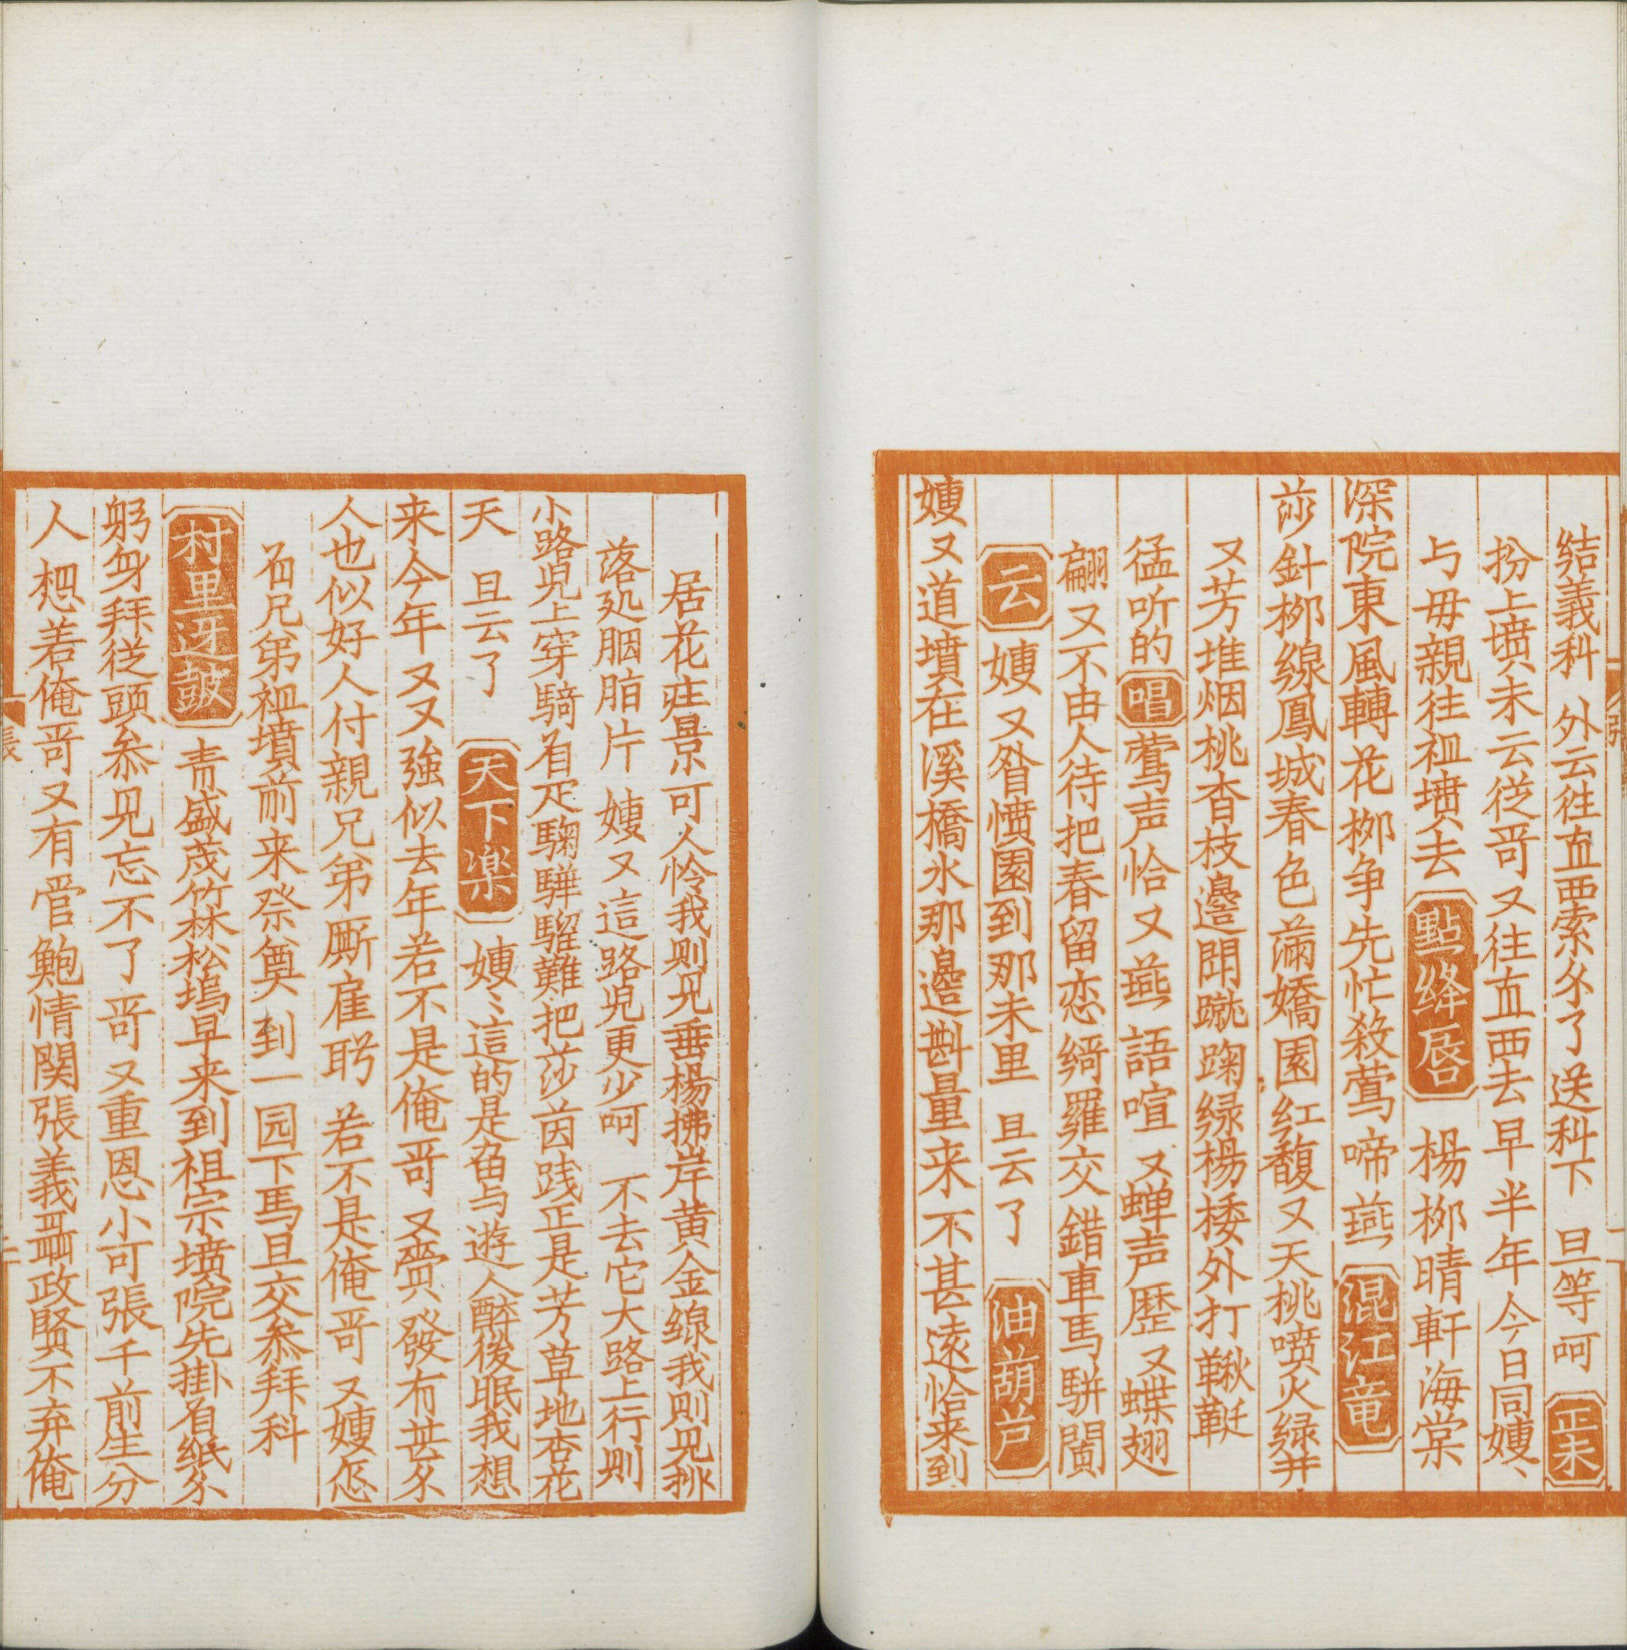 結義科 外云往直西索分了送科下 旦等呵 正末
扮上墳末云從哥又往直西去早半年今日同嫂〻
与毋親往祖墳去 點绛唇 楊栁晴軒海棠
深院東風轉花栁争先忙殺莺啼燕 混江竜
莎針栁線鳳城春色滿嬌園红馥又天桃喷火緑井
又芳堆烟桃杏枝邉聞蹴踘緑楊楼外打鞦韆
猛听的 唱 鶯声恰又燕語喧又蟬声歴又蝶翅
翩又不由人待把春留恋绮羅交錯車馬駢闐
云 嫂又咱墳園到那未里 旦云了 油葫芦
嫂又道墳在溪橋水那邉斟量来不甚遠恰来到
居花庄景可人怜我则见垂楊拂岸黄金線我则见桃
落処胭脂片 嫂又這路児更少呵 不去它大路上行则
小路児上穿騎着疋騧驊騮難把莎茵践正是芳草地杏花
天 旦云了 天下楽 嫂〻這的是畄与遊人醉後眠我想
来今年又又強似去年若不是俺哥又赍發有甚分
人也似好人付親兄弟厮雇聘 若不是俺哥又嫂怎
着兄弟祖墳前来祭奠 到一园下馬旦交叅拜科
村里迓皷 青盛茂竹林松塢早来到祖宗墳院先掛着紙分
躬身拜従頭叅见忘不了哥又重恩小可張千前生分
人 想若俺哥又有管鮑情関張義聶政賢不弃俺
張